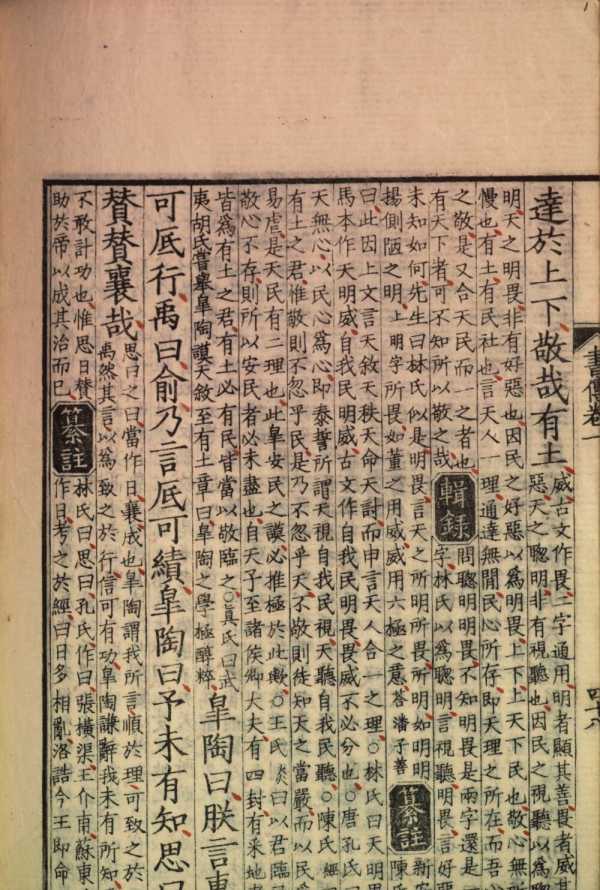 書傳卷一
達於上下敬哉有土
威古文作畏二字通用明者顯其善畏者威
惡天之聰明非有視聽也因民之視聽以為
明天之明畏非有好惡也因民之好惡以為明畏上下上天下民也敬心無
慢也有土有民社也言天人一理通達無間民心所存即天理之所在而吾
之敬是又合天民而一之者也
有天下者可不知所以敬之哉
輯録
問聰明明畏不知明畏是兩字還是一
字林氏以為聰明言視聽明畏言好惡
未知如何先生曰林氏似是明畏言天之所明所畏所明如明明
揚側陋之明上明字所畏如董之用威威用六極之意荅潘子善
纂註
新安
陳氏
曰此因上文言天敘天秩天命天討而申言天人合一之理○林氏曰天明畏
馬本作天明威自我民明威古文作自我民明畏畏不必分也○唐孔氏曰
天無心以民心為心即泰誓所謂天視自我民視天聽自我民聽○陳氏經曰
有土之君惟敬則不忽乎民是乃不忽乎天不敬則徒知天之當嚴而以民為
易虐是天民有二理也此皐安民之謨必推極於此歟○王氏炎曰以君臨
敬心不存則所以安民者必未盡也自天子至諸侯卿大夫有四封有采地
皆為有土之君有土必有民皆當以敬臨之○真氏曰武
夷胡氏嘗舉皐陶謨天敘至有土章曰皐陶之學極醇粹
皐陶曰朕言惠
可厎行禹曰俞乃言厎可績皐陶曰予未有知思曰
贊贊襄哉
思曰之曰當作日襄成也皐陶謂我所言順於理可致之於
禹然其言以為致之於行信可有功皐陶謙辭我未有所知
不敢計功也惟思日贊
助於帝以成其治而已
纂註
林氏曰思曰孔氏作曰張橫渠王介甫蘇東
作日考之於經曰日多相亂洛誥今王即命
四十八